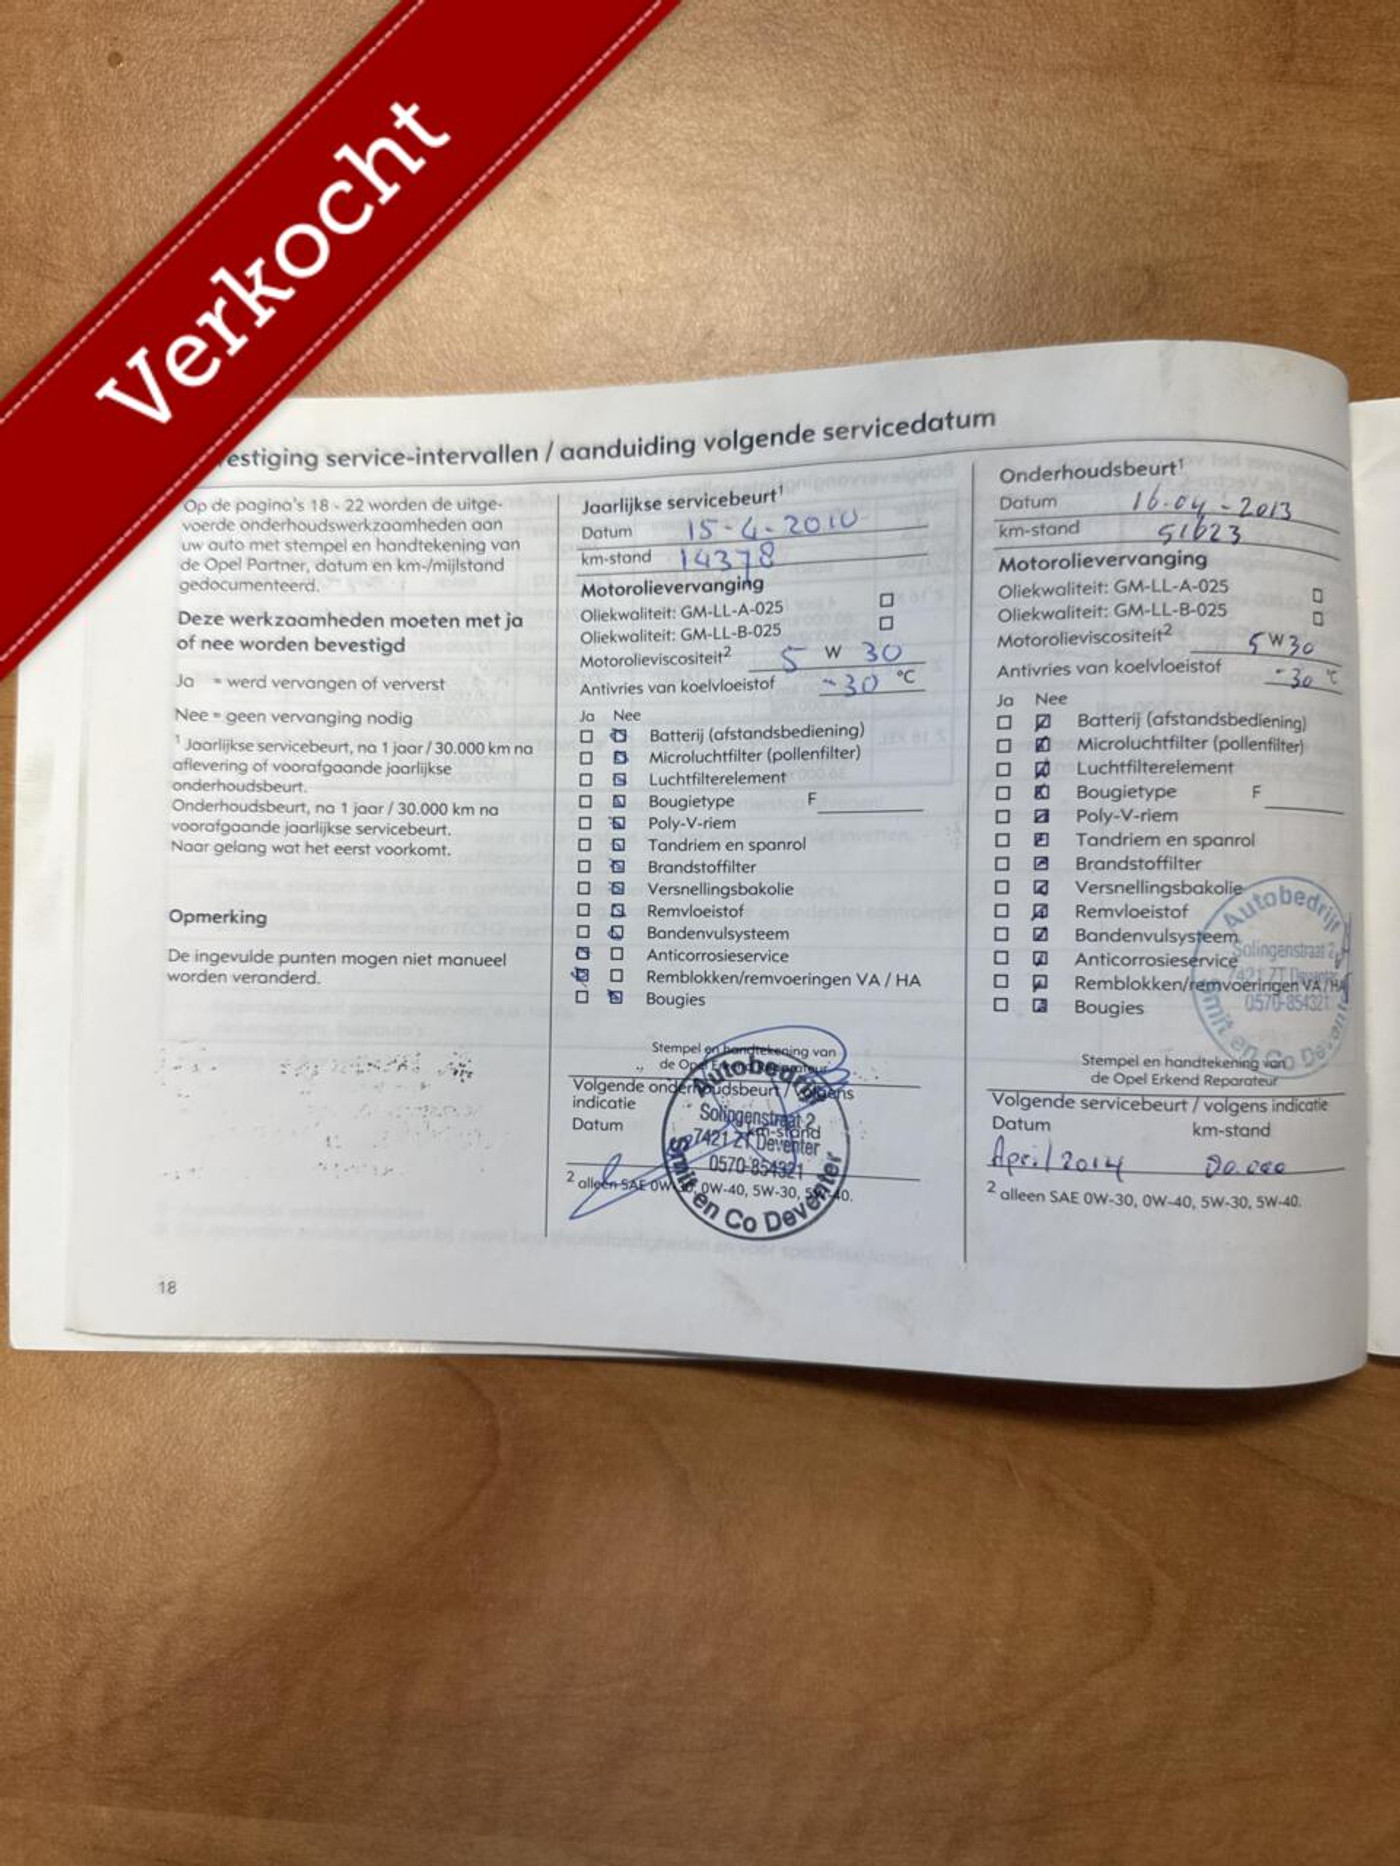 Verkocht
estiging service-intervallen / aanduiding volgende servicedatum
Op de pagina's 18 - 22 worden de uitge-
voerde onderhoudswerkzaamheden aan
uw auto met stempel en handtekening van
de Opel Partner, datum en km-/mijlstand
gedocumenteerd.
Deze werkzaamheden moeten met ja
of nee worden bevestigd
Ja = werd vervangen of ververst
Nee = geen vervanging nodig
1 Jaarlijkse servicebeurt, na 1 jaar / 30.000 km na
aflevering of voorafgaande jaarlijkse
onderhoudsbeurt.
Onderhoudsbeurt, na 1 jaar / 30.000 km na
voorafgaande jaarlijkse servicebeurt.
Naar gelang wat het eerst voorkomt.
Opmerking
De ingevulde punten mogen niet manueel
worden veranderd.
18
Jaarlijkse servicebeurt1
Datum 15-4-2010
km-stand 14378
Motorolievervanging
Oliekwaliteit: GM-LL-A-025
Oliekwaliteit: GM-LL-B-025
Motorolieviscositeit2 5 W 30
Antivries van koelvloeistof -30 °C
Ja Nee
Batterij (afstandsbediening)
Microluchtfilter (pollenfilter)
Luchtfilterelement
Bougietype F
Poly-V-riem
Tandriem en spanrol
Brandstoffilter
Versnellingsbakolie
Remvloeistof
Bandenvulsysteem
Anticorrosieservice
Remblokken/remvoeringen VA / HA
Bougies
Stempel en handtekening van
de Opel Erkend Reparateur
Volgende onderhoudsbeurt / volgens
indicatie
Datum km-stand
2 alleen SAE 0W-30, 0W-40, 5W-30, 5W-40.
Autobedrijf
Solingenstraat 2
7421 ZT Deventer
0570-854321
Smit en Co Deventer
Onderhoudsbeurt1
Datum 16-04-2013
km-stand 51623
Motorolievervanging
Oliekwaliteit: GM-LL-A-025
Oliekwaliteit: GM-LL-B-025
Motorolieviscositeit2 5 W 30
Antivries van koelvloeistof -30 °C
Ja Nee
Batterij (afstandsbediening)
Microluchtfilter (pollenfilter)
Luchtfilterelement
Bougietype F
Poly-V-riem
Tandriem en spanrol
Brandstoffilter
Versnellingsbakolie
Remvloeistof
Bandenvulsysteem
Anticorrosieservice
Remblokken/remvoeringen VA/HA
Bougies
Autobedrijf
Solingenstraat 2
7421 ZT Deventer
0570-854321
Smit en Co Deventer
Stempel en handtekening van
de Opel Erkend Reparateur
Volgende servicebeurt / volgens indicatie
Datum km-stand
April 2014 80.000
2 alleen SAE 0W-30, 0W-40, 5W-30, 5W-40.